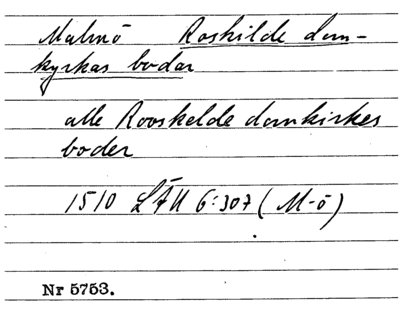 Malmö Roskilde dom-
kyrkas bodar
alle Rooskelde domkirkes
boder
1510 LÄU 6:307 (M-ö)
Nr 5753.